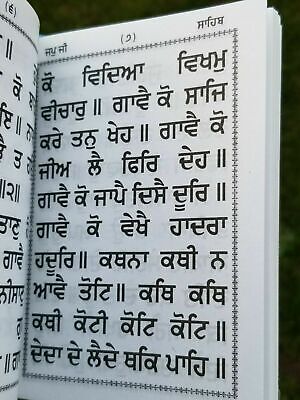 ਜਪੁ ਜੀ (੭) ਸਾਹਿਬ
ਕੋ ਵਿਦਿਆ ਵਿਖਮੁ
ਵੀਚਾਰੁ॥ ਗਾਵੈ ਕੋ ਸਾਜਿ
ਕਰੇ ਤਨੁ ਖੇਹ॥ ਗਾਵੈ ਕੋ
ਜੀਅ ਲੈ ਫਿਰਿ ਦੇਹ॥
ਗਾਵੈ ਕੋ ਜਾਪੈ ਦਿਸੈ ਦੂਰਿ॥
ਗਾਵੈ ਕੋ ਵੇਖੈ ਹਾਦਰਾ
ਹਦੂਰਿ॥ ਕਥਨਾ ਕਥੀ ਨ
ਆਵੈ ਤੋਟਿ॥ ਕਥਿ ਕਥਿ
ਕਥੀ ਕੋਟੀ ਕੋਟਿ ਕੋਟਿ॥
ਦੇਦਾ ਦੇ ਲੈਦੇ ਥਕਿ ਪਾਹਿ॥